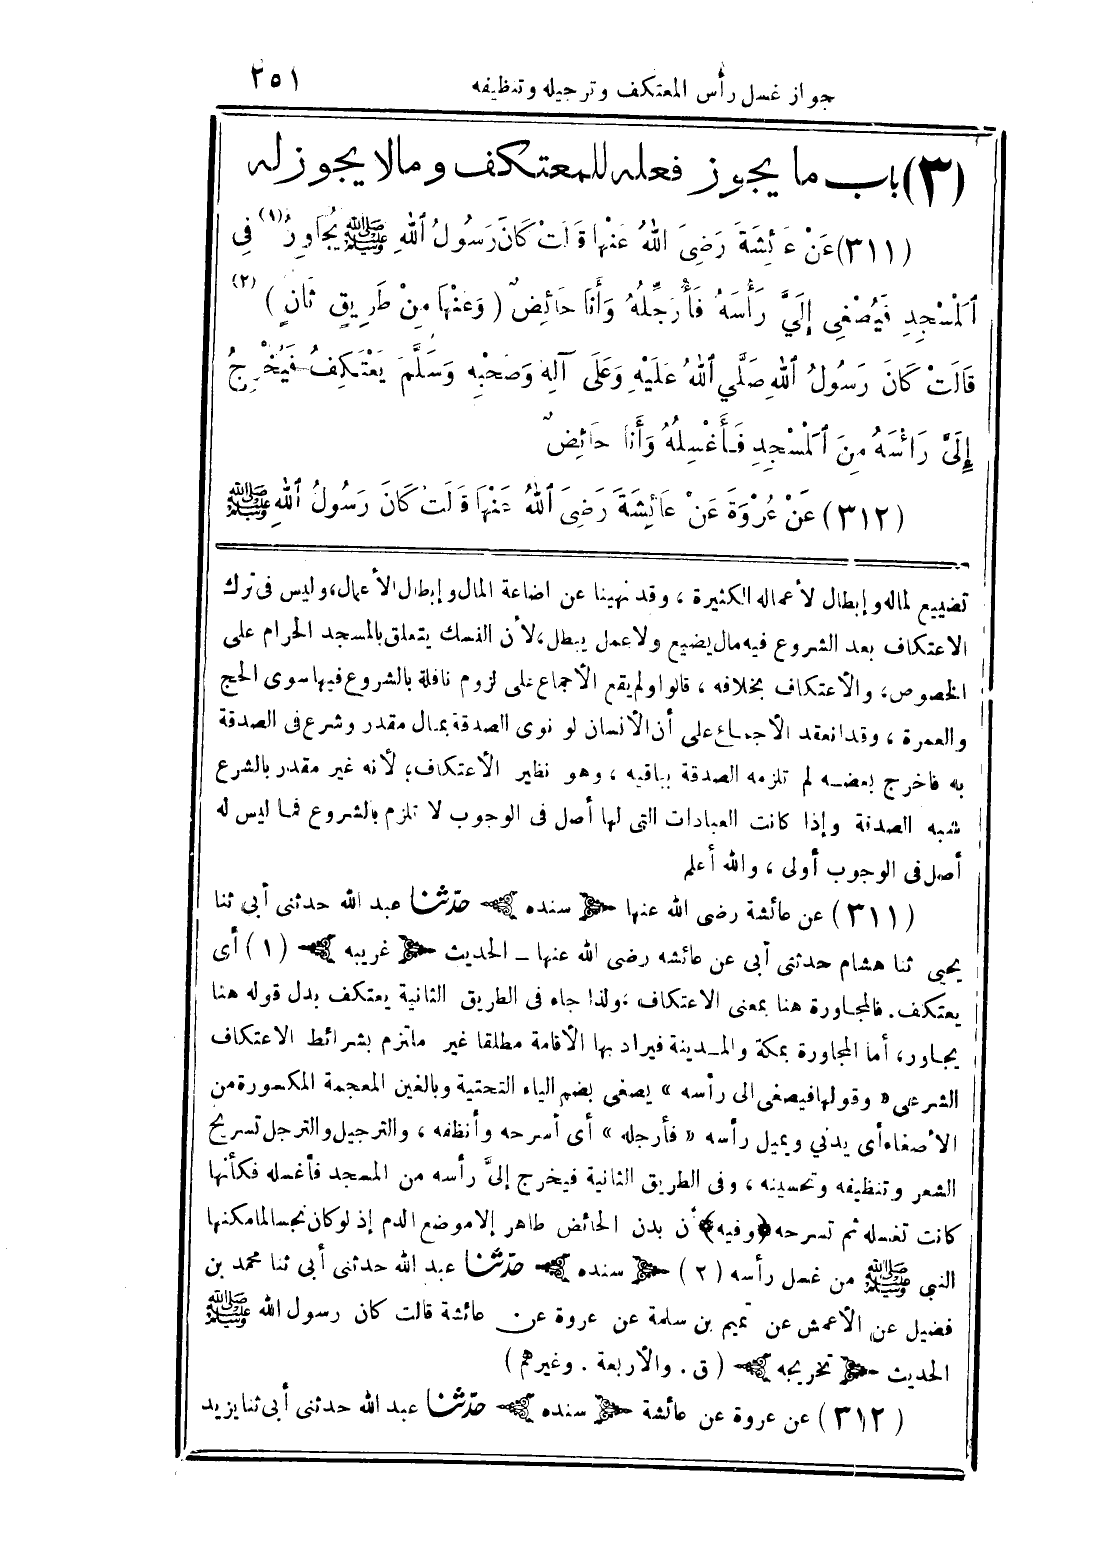 جواز غسل رأس المعتكف وترجيله وتنظيفه ٢٥١
(٣) باب ما يجوز فعله للمعتكف ومالا يجوز له
(٣١١) عَنْ عَائِشَةَ رَضِيَ اللهُ عَنْهَا قَالَتْ كَانَ رَسُولُ اللهِ ﷺ يُجَاوِرُ (١) فِي
الْمَسْجِدِ فَيُصْغِي إِلَيَّ رَأْسَهُ فَأُرَجِّلُهُ وَأَنَا حَائِضٌ (وَعَنْهَا مِنْ طَرِيقٍ ثَانٍ) (٢)
قَالَتْ كَانَ رَسُولُ اللهِ صَلَّي اللهُ عَلَيْهِ وَعَلَى آلِهِ وَصَحْبِهِ وَسَلَّمَ يَعْتَكِفُ فَيُخْرِجُ
إِلَيَّ رَأْسَهُ مِنَ الْمَسْجِدِ فَأَغْسِلُهُ وَأَنَا حَائِضٌ
(٣١٢) عَنْ عُرْوَةَ عَنْ عَائِشَةَ رَضِيَ اللهُ عَنْهَا قَالَتْ كَانَ رَسُولُ اللهِ ﷺ
تضييع لماله وإبطال لأعماله الكثيرة ، وقد نهينا عن اضاعة المال وإبطال الأعمال، وليس فى ترك
الاعتكاف بعد الشروع فيه مال يضيع ولاعمل يبطل، لأن النسك يتعلق بالمسجد الحرام على
الخصوص، والأعتكاف بخلافه ، قالوا ولم يقع الأجماع على لزوم نافلة بالشروع فيها سوى الحج
والعمرة ، وقد انعقد الأجماع على أن الأنسان لو نوى الصدقة بمال مقدر وشرع فى الصدقة
به فاخرج بعضه لم تلزمه الصدقة بباقيه ، وهو نظير الأعتكاف؛ لأنه غير مقدر بالشرع
شبه الصدقة وإذا كانت العبادات التى لها أصل فى الوجوب لا تلزم بالشروع فما ليس له
أصل فى الوجوب أولى ، والله أعلم
(٣١١) عن عائشة رضى الله عنها ﴿ سنده ﴾ حدّثنا عبد الله حدثنى أبى ثنا
يحيى ثنا هشام حدثنى أبى عن عائشه رضى الله عنها ـ الحديث ﴿ غريبه ﴾ (١) أى
يعتكف. فالمجاورة هنا بمعنى الاعتكاف ؛ولذا جاء فى الطريق الثانية يعتكف بدل قوله هنا
يجاور، أما المجاورة بمكة والمدينة فيراد بها الأقامة مطلقا غير ملتزم بشرائط الاعتكاف
الشرعى « وقولها فيصغى الى رأسه » يصغى بضم الياء التحتية وبالغين المعجمة المكسورة من
الأصغاء أى يدني ويميل رأسه « فأرجله » أى أسرحه وأنظفه ، والترجيل والترجل تسريح
الشعر وتنظيفه وتحسينه ، وفى الطريق الثانية فيخرج إلىَّ رأسه من المسجد فأغسله فكأنها
كانت تغسله ثم تسرحه ﴿وفيه﴾ أن بدن الحائض طاهر إلا موضع الدم إذ لو كان نجسا لما مكنها
النبى ﷺ من غسل رأسه (٢) ﴿ سنده ﴾ حدّثنا عبد الله حدثنى أبى ثنا محمد بن
فضيل عن الأعمش عن تميم بن سلمة عن عروة عن عائشة قالت كان رسول الله ﷺ
الحديث ﴿ تخريجه ﴾ (ق . والأربعة . وغيرهم)
(٣١٢) عن عروة عن عائشة ﴿ سنده ﴾ حدّثنا عبد الله حدثنى أبى ثنا يزيد